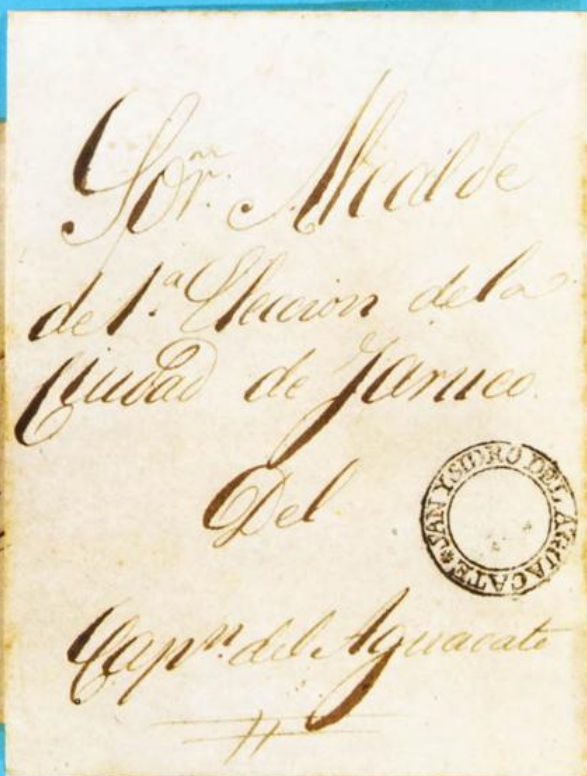 Sor. Alcalde
de 1.a Eleccion de la
Ciudad de Jaruco.
Del
SAN YSIDRO DEL AGUACATE
Capn. del Aguacate